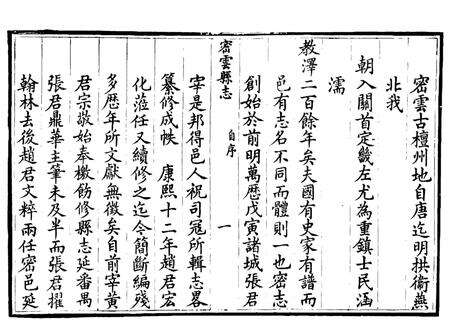 密雲古檀州地自唐迄明拱衛燕
北我
朝入關首定畿左尤為重鎮士民涵
濡
教澤二百餘年矣夫國有史家有譜而
邑有志名不同而體則一也密志
創始於前明萬歷戊寅諸城張君
密雲縣志 自序 一
宰是邦得邑人祝司寇所輯志畧
纂修成帙 康熙十二年趙君宏
化蒞任又續修之迄今簡斷編殘
多歷年所文獻無徵矣自前宰黃
君宗敬始奉檄飭修縣志延番禺
張君鼎華主筆未及半而張君擢
翰林去後趙君文粹兩任密邑延